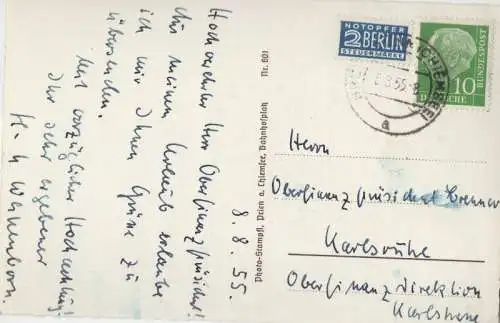 8. 8. 55.
Hochverehrter Herr Oberfinanzpräsident!
Für meinen Urlaub erlaube
ich mir Ihnen Grüsse zu
übersenden.
Mit vorzüglicher Hochachtung!
Ihr sehr ergebener
Photo-Stampfl, Prien a. Chiemsee, Bahnhofplatz Nr. 601
NOTOPFER
2 BERLIN
STEUERMARKE
CHIEMSEE
8.55-8
a
10
DEUTSCHE
BUNDESPOST
Herrn
Oberfinanzpräsident
Karlsruhe
Oberfinanzdirektion
Karlstrasse